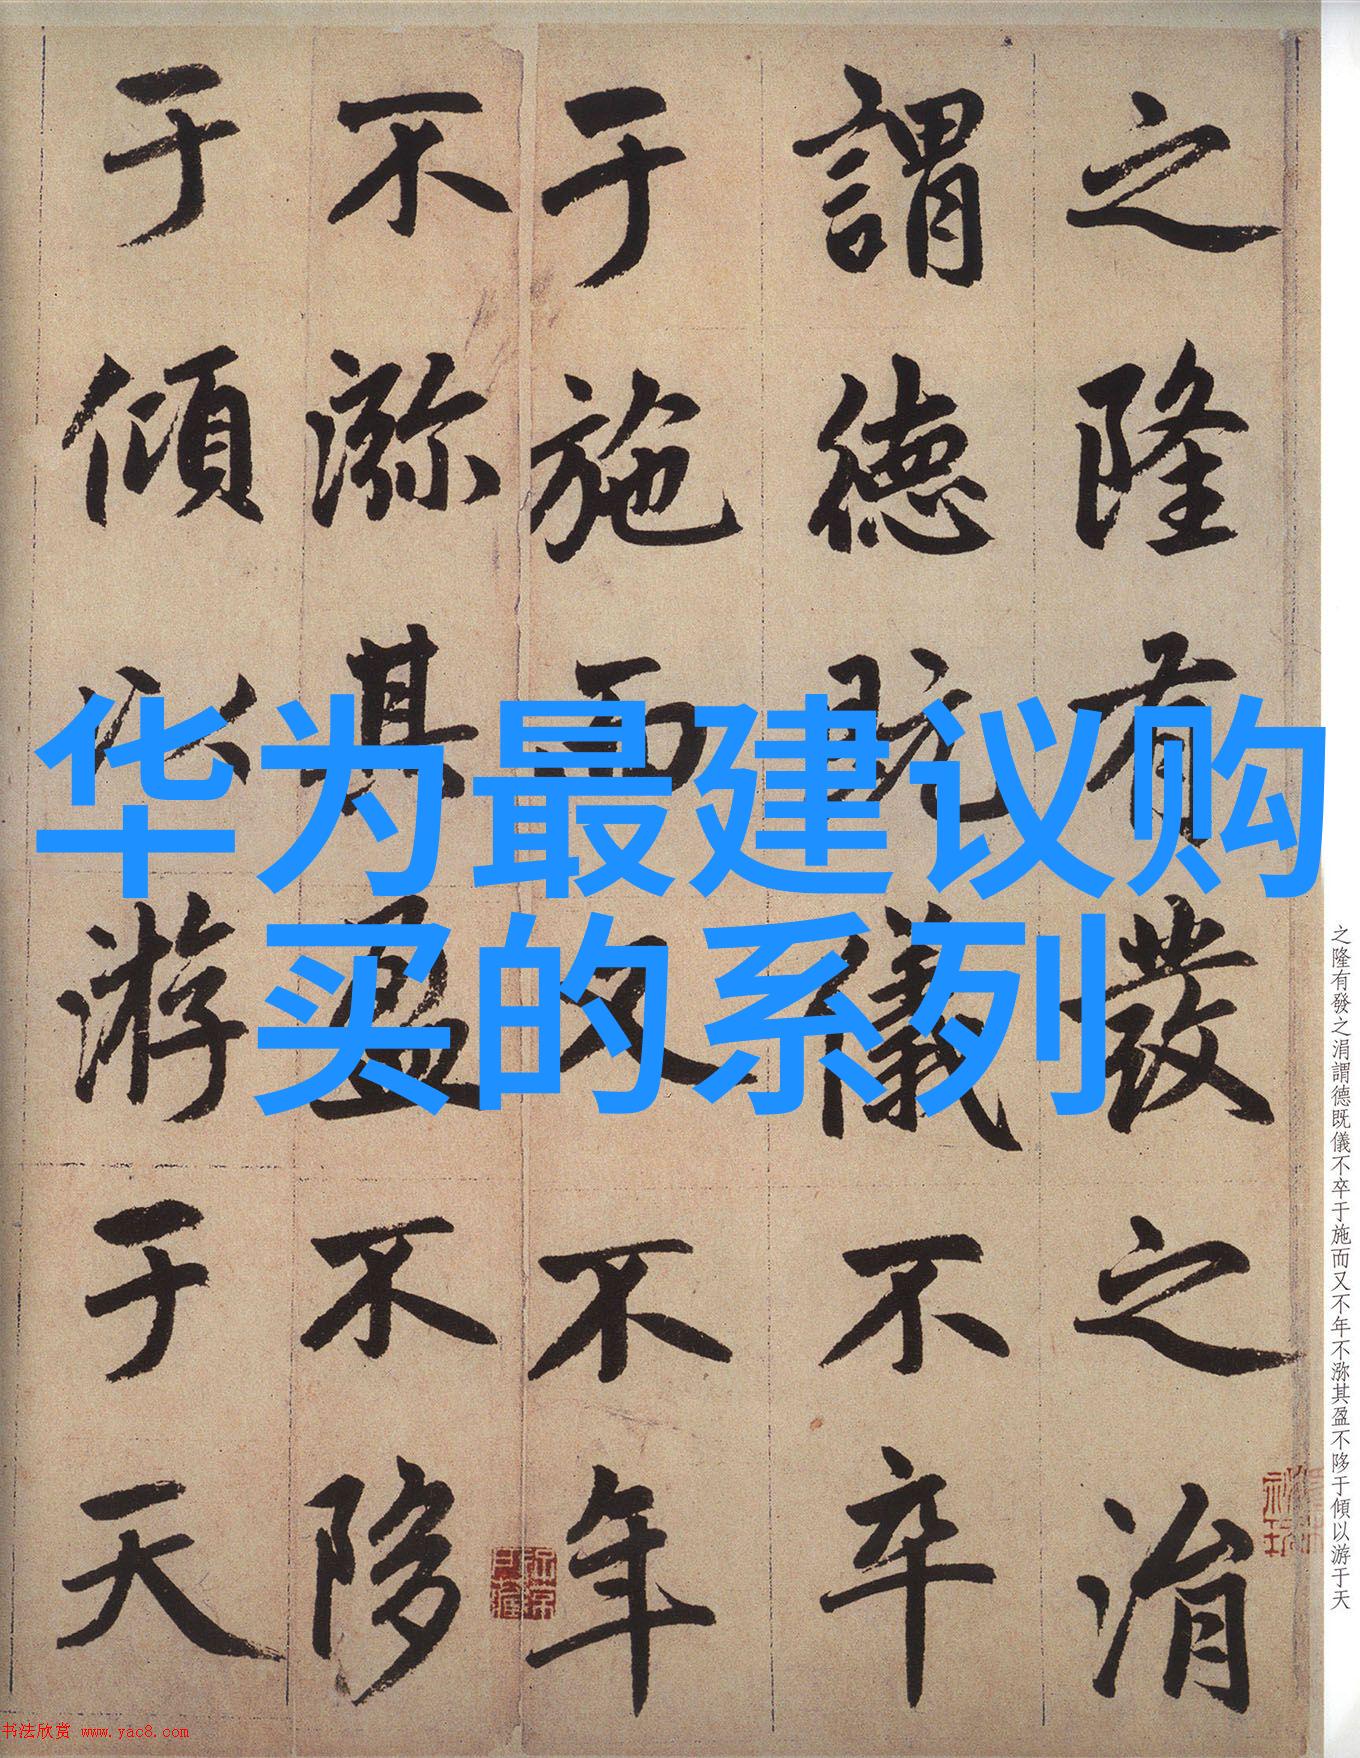 之隆有發之涓
謂德既儀不卒
于施而又不年
不游其盈不陊
于傾以游于天
华为最建议购
买的系列
之隆有發之涓謂德既儀不卒于施而又不年不游其盈不陊于傾以游于天
书法欣赏 www.yac8.com